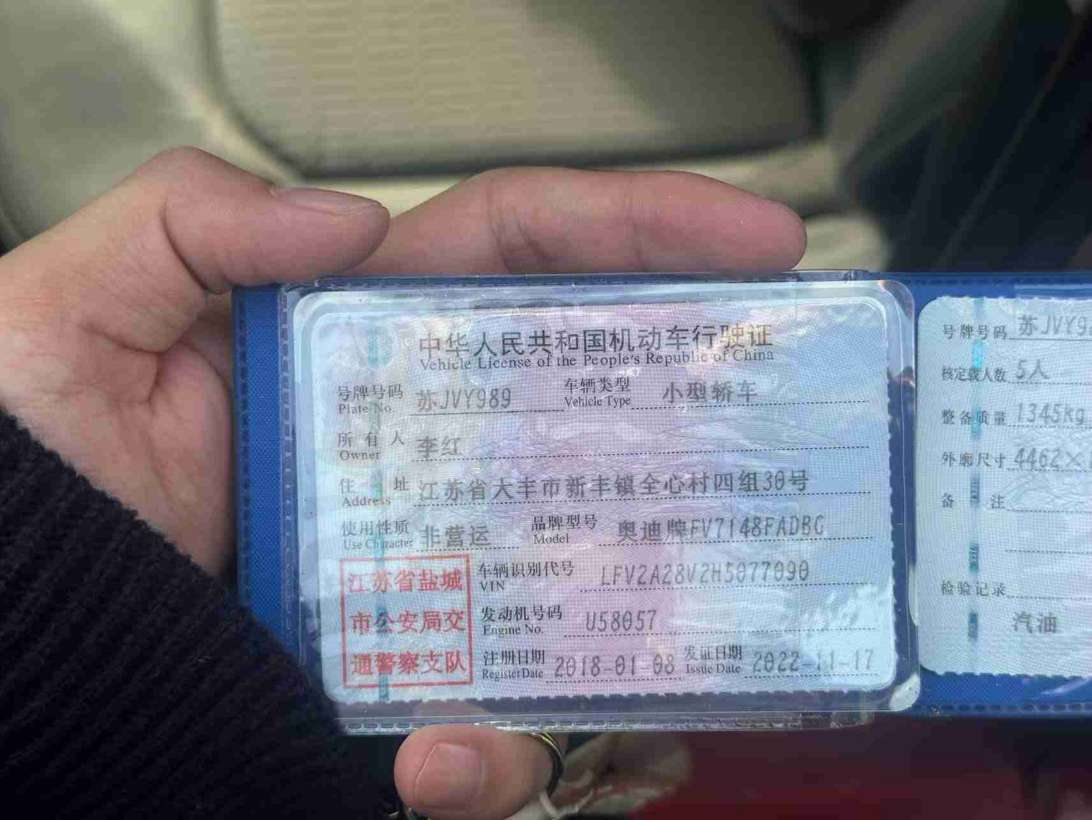 中华人民共和国机动车行驶证
Vehicle License of the People's Republic of China
号牌号码 苏JVY989 车辆类型 小型轿车
Plate No. Vehicle Type
所有人 李红
Owner
住址 江苏省大丰市新丰镇全心村四组30号
Address
使用性质 非营运 品牌型号 奥迪牌FV7148FADBG
Use Character Model
江苏省盐城
市公安局交
通警察支队
车辆识别代号 LFV2A28V2H5077090
VIN
发动机号码 U58057
Engine No.
注册日期 2018-01-08 发证日期 2022-11-17
Register Date Issue Date
号牌号码 苏JVY9
核定载人数 5人
整备质量 1345kg
外廓尺寸 4462×
备注
检验记录
汽油